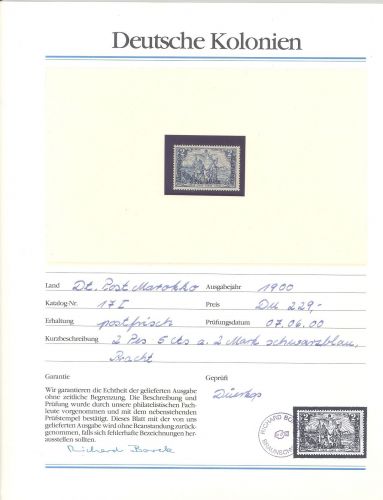 Deutsche Kolonien
Land Dt. Post Marokko Ausgabejahr 1900
Katalog-Nr. 17 I Preis DM 229,-
Erhaltung postfrisch Prüfungsdatum 07.06.00
Kurzbeschreibung 2 Pes 5 cts a. 2 Mark schwarzblau,
Pracht
Garantie
Geprüft
Wir garantieren die Echtheit der gelieferten Ausgabe
ohne zeitliche Begrenzung. Die Beschreibung und
Prüfung wurde durch unsere philatelistischen Fach-
leute vorgenommen und mit dem nebenstehenden
Prüfstempel bestätigt. Dieses Blatt mit der von uns
gelieferten Ausgabe wird ohne Beanstandung zurück-
genommen, falls sich fehlerhafte Bezeichnungen her-
ausstellen sollten.
Richard Borek
RICHARD BO
BRAUNSCH